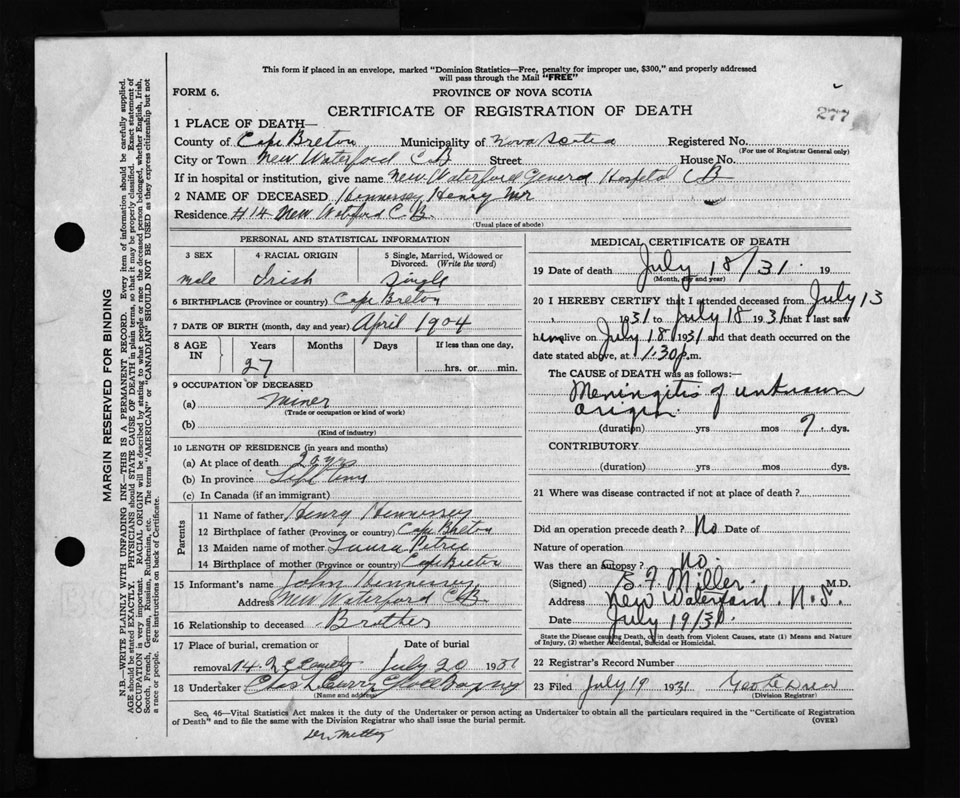 This form if placed in an envelope, marked "Dominion Statistics—Free, penalty for improper use, $300," and properly addressed
will pass through the Mail "FREE"
FORM 6.
PROVINCE OF NOVA SCOTIA
CERTIFICATE OF REGISTRATION OF DEATH
277
1 PLACE OF DEATH—
County of Cape Breton Municipality of Nova Scotia Registered No.
(For use of Registrar General only)
City or Town New Waterford C.B Street House No.
If in hospital or institution, give name New Waterford General Hospital CB
2 NAME OF DECEASED Hennessey Henry Mr
Residence #14 New Waterford C.B.
(Usual place of abode)
PERSONAL AND STATISTICAL INFORMATION
3 SEX 4 RACIAL ORIGIN 5 Single, Married, Widowed or
Divorced. (Write the word)
male Irish Single
6 BIRTHPLACE (Province or country) Cape Breton
7 DATE OF BIRTH (month, day and year) April 1904
8 AGE IN Years Months Days If less than one day,
27 hrs. or min.
9 OCCUPATION OF DECEASED
(a) Miner
(Trade or occupation or kind of work)
(b)
(Kind of industry)
10 LENGTH OF RESIDENCE (in years and months)
(a) At place of death 20 yrs
(b) In province Life time
(c) In Canada (if an immigrant)
Parents
11 Name of father Henry Hennessey
12 Birthplace of father (Province or country) Cape Breton
13 Maiden name of mother Laura Petrie
14 Birthplace of mother (Province or country) Cape Breton
15 Informant's name John Hennessey
Address New Waterford C.B.
16 Relationship to deceased Brother
17 Place of burial, cremation or Date of burial
removal July 20 1931
18 Undertaker
(Name and address)
MEDICAL CERTIFICATE OF DEATH
19 Date of death July 18/31. 19
(Month, day and year)
20 I HEREBY CERTIFY that I attended deceased from July 13
1931 to July 18 1931 that I last saw
him alive on July 18 1931 and that death occurred on the
date stated above, at 1.30 p.m.
The CAUSE of DEATH was as follows:—
Meningitis of unknown
origin.
(duration) yrs mos 7. dys.
CONTRIBUTORY
(duration) yrs mos dys.
21 Where was disease contracted if not at place of death?
Did an operation precede death? No Date of
Nature of operation
Was there an autopsy? no.
(Signed) B. F. Miller. M.D.
Address New Waterford. N.S.
Date July 19/31.
State the Disease causing Death, or in death from Violent Causes, state (1) Means and Nature
of Injury, (2) whether Accidental, Suicidal or Homicidal.
22 Registrar's Record Number
23 Filed July 19 1931
(Division Registrar)
Sec. 46—Vital Statistics Act makes it the duty of the Undertaker or person acting as Undertaker to obtain all the particulars required in the "Certificate of Registration
of Death" and to file the same with the Division Registrar who shall issue the burial permit.
(OVER)
MARGIN RESERVED FOR BINDING
N.B.—WRITE PLAINLY WITH UNFADING INK—THIS IS A PERMANENT RECORD. Every item of information should be carefully supplied.
AGE should be stated EXACTLY. PHYSICIANS should STATE CAUSE OF DEATH in plain terms, so that it may be properly classified. Exact statement of
OCCUPATION is very important. RACIAL ORIGIN will be described by stating to what people or race the deceased person belonged, whether English, Irish,
Scotch, French, German, Russian, Ruthenian, etc. The terms "AMERICAN" or "CANADIAN" SHOULD NOT BE USED as they express citizenship but not
a race or people. See instructions on back of Certificate.